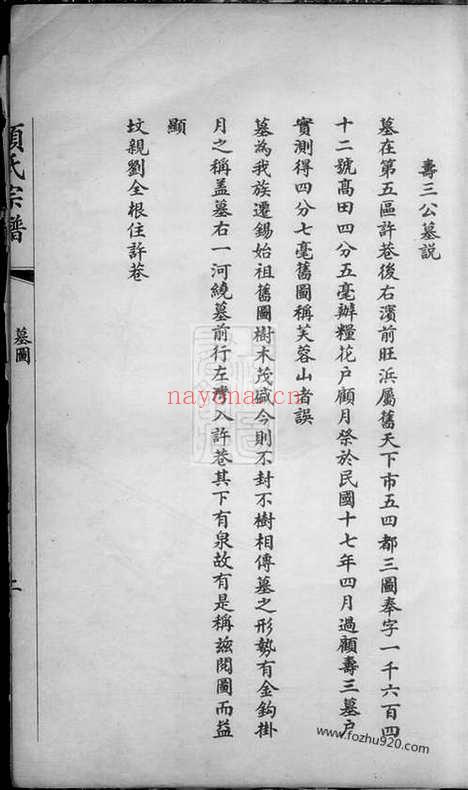 壽三公墓説
墓在第五區許巷後右濱前旺浜屬舊天下市五四都三圖奉字一千六百四
十二號高田四分五毫辦糧花户顧月癸於民國十七年四月過顧壽三墓户
實測得四分七毫舊圖稱芙蓉山者誤
墓為我族遷錫始祖舊圖樹木茂盛今則不封不樹相傳墓之形勢有金鈎掛
月之稱盖墓右一河繞墓前行左灣入許巷其下有泉故有是稱兹閲圖而益
顯
坟親劉全根住許巷
氏宗譜
墓圖
nayona.cn
www.fozhu920.com